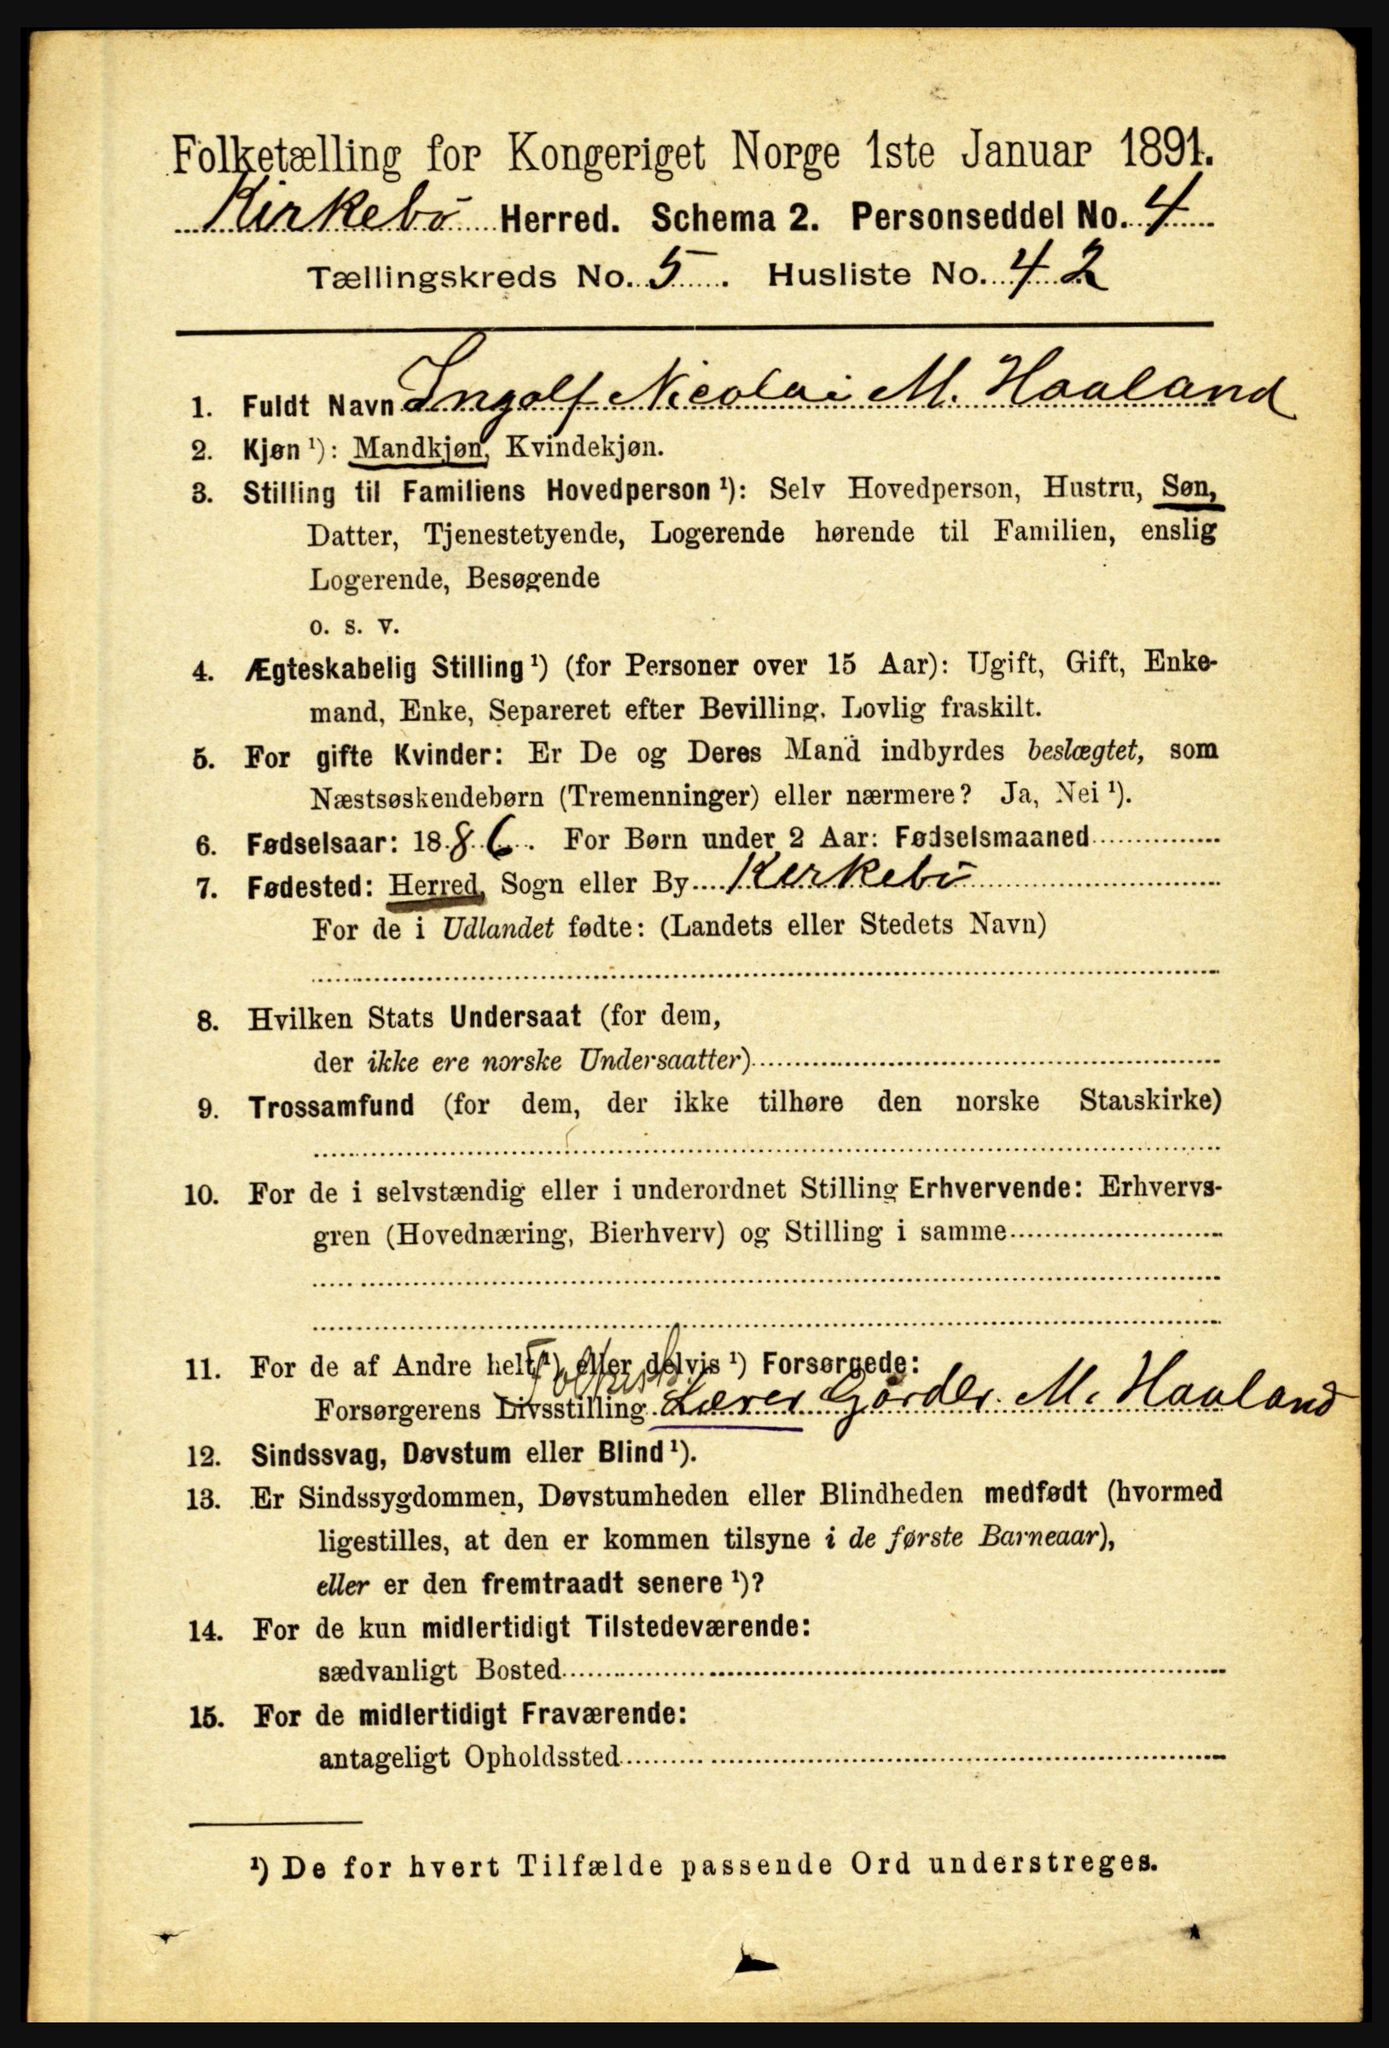 Folketælling for Kongeriget Norge 1ste Januar 1891.
Kirkebø Herred. Schema 2. Personseddel No. 4
Tællingskreds No. 5. Husliste No. 42
1. Fuldt Navn Ingolf Nicolai M. Haaland
2. Kjøn ¹): Mandkjøn, Kvindekjøn.
3. Stilling til Familiens Hovedperson ¹): Selv Hovedperson, Hustru, Søn,
Datter, Tjenestetyende, Logerende hørende til Familien, enslig
Logerende, Besøgende
o. s. v.
4. Ægteskabelig Stilling ¹) (for Personer over 15 Aar): Ugift, Gift, Enke-
mand, Enke, Separeret efter Bevilling. Lovlig fraskilt.
5. For gifte Kvinder: Er De og Deres Mand indbyrdes beslægtet, som
Næstsøskendebørn (Tremenninger) eller nærmere? Ja, Nei ¹).
6. Fødselsaar: 1886. For Børn under 2 Aar: Fødselsmaaned
7. Fødested: Herred, Sogn eller By Kirkebø
For de i Udlandet fødte: (Landets eller Stedets Navn)
8. Hvilken Stats Undersaat (for dem,
der ikke ere norske Undersaatter)
9. Trossamfund (for dem, der ikke tilhøre den norske Statskirke)
10. For de i selvstændig eller i underordnet Stilling Erhvervende: Erhvervs-
gren (Hovednæring, Bierhverv) og Stilling i samme
11. For de af Andre helt ¹) eller delvis ¹) Forsørgede:
Forsørgerens Livsstilling Lærer Gårdbr. M. Haaland
12. Sindssvag, Døvstum eller Blind ¹).
13. Er Sindssygdommen, Døvstumheden eller Blindheden medfødt (hvormed
ligestilles, at den er kommen tilsyne i de første Barneaar),
eller er den fremtraadt senere ¹)?
14. For de kun midlertidigt Tilstedeværende:
sædvanligt Bosted
15. For de midlertidigt Fraværende:
antageligt Opholdssted
¹) De for hvert Tilfælde passende Ord understreges.